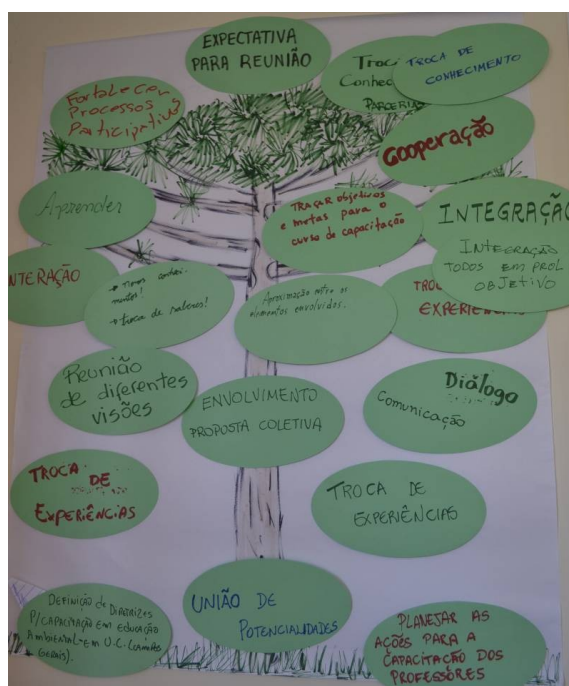 EXPECTATIVA
PARA REUNIÃO
TROCA DE
CONHECIMENTO
PARCERIA
Fortalecer
Processos
Participativos
Cooperação
Aprender
TRAÇAR objetivos
e metas para o
curso de capacitação
INTEGRAÇÃO
INTEGRAÇÃO
TODOS EM PROL
OBJETIVO
NTERAÇÃO
→ troca de saberes!
Aproximação entre os
elementos envolvidos.
EXPERIÊNCIAS
Reunião
de diferentes
visões
ENVOLVIMENTO
PROPOSTA COLETIVA
Diálogo
Comunicação
TROCA DE
EXPERIÊNCIAS
TROCA DE
EXPERIÊNCIAS
DEFINIÇÃO de DIRETRIZES
P/CAPACITAÇÃO EM EDUCAÇÃO
AMBIENTAL EM U.C. (CAMPOS
GERAIS).
UNIÃO DE
POTENCIALIDADES
PLANEJAR AS
AÇÕES PARA A
CAPACITAÇÃO DOS
PROFESSORES